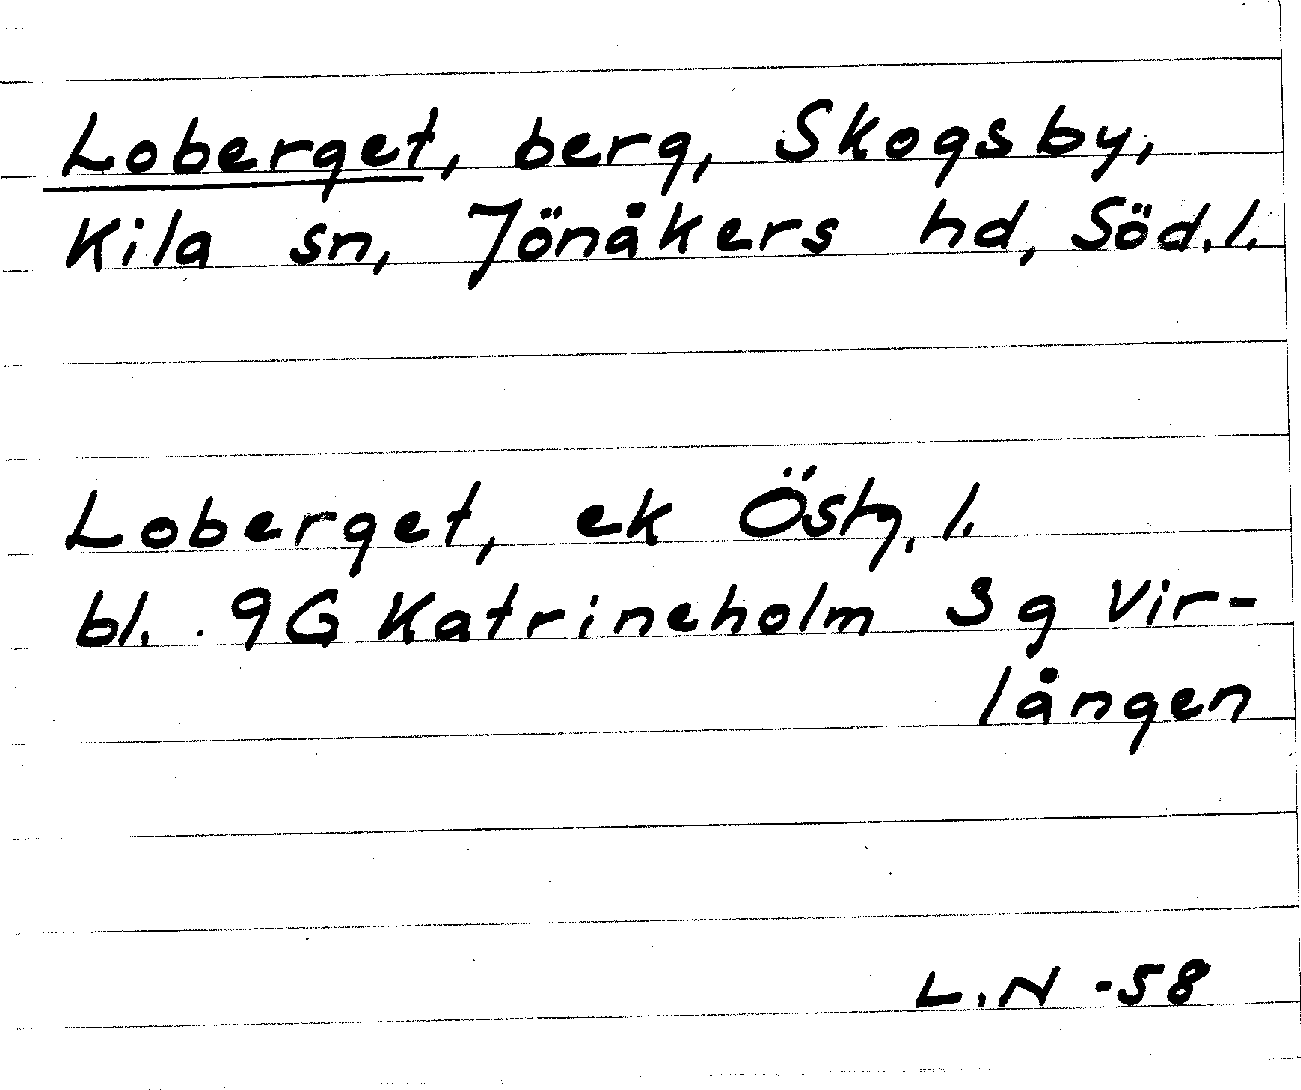 Loberget, berg, Skogsby,
Kila sn, Jönåkers hd, Söd.l.
Loberget, ek Östg.l.
bl. 9G Katrineholm 3g Vir-
lången
L.N -58